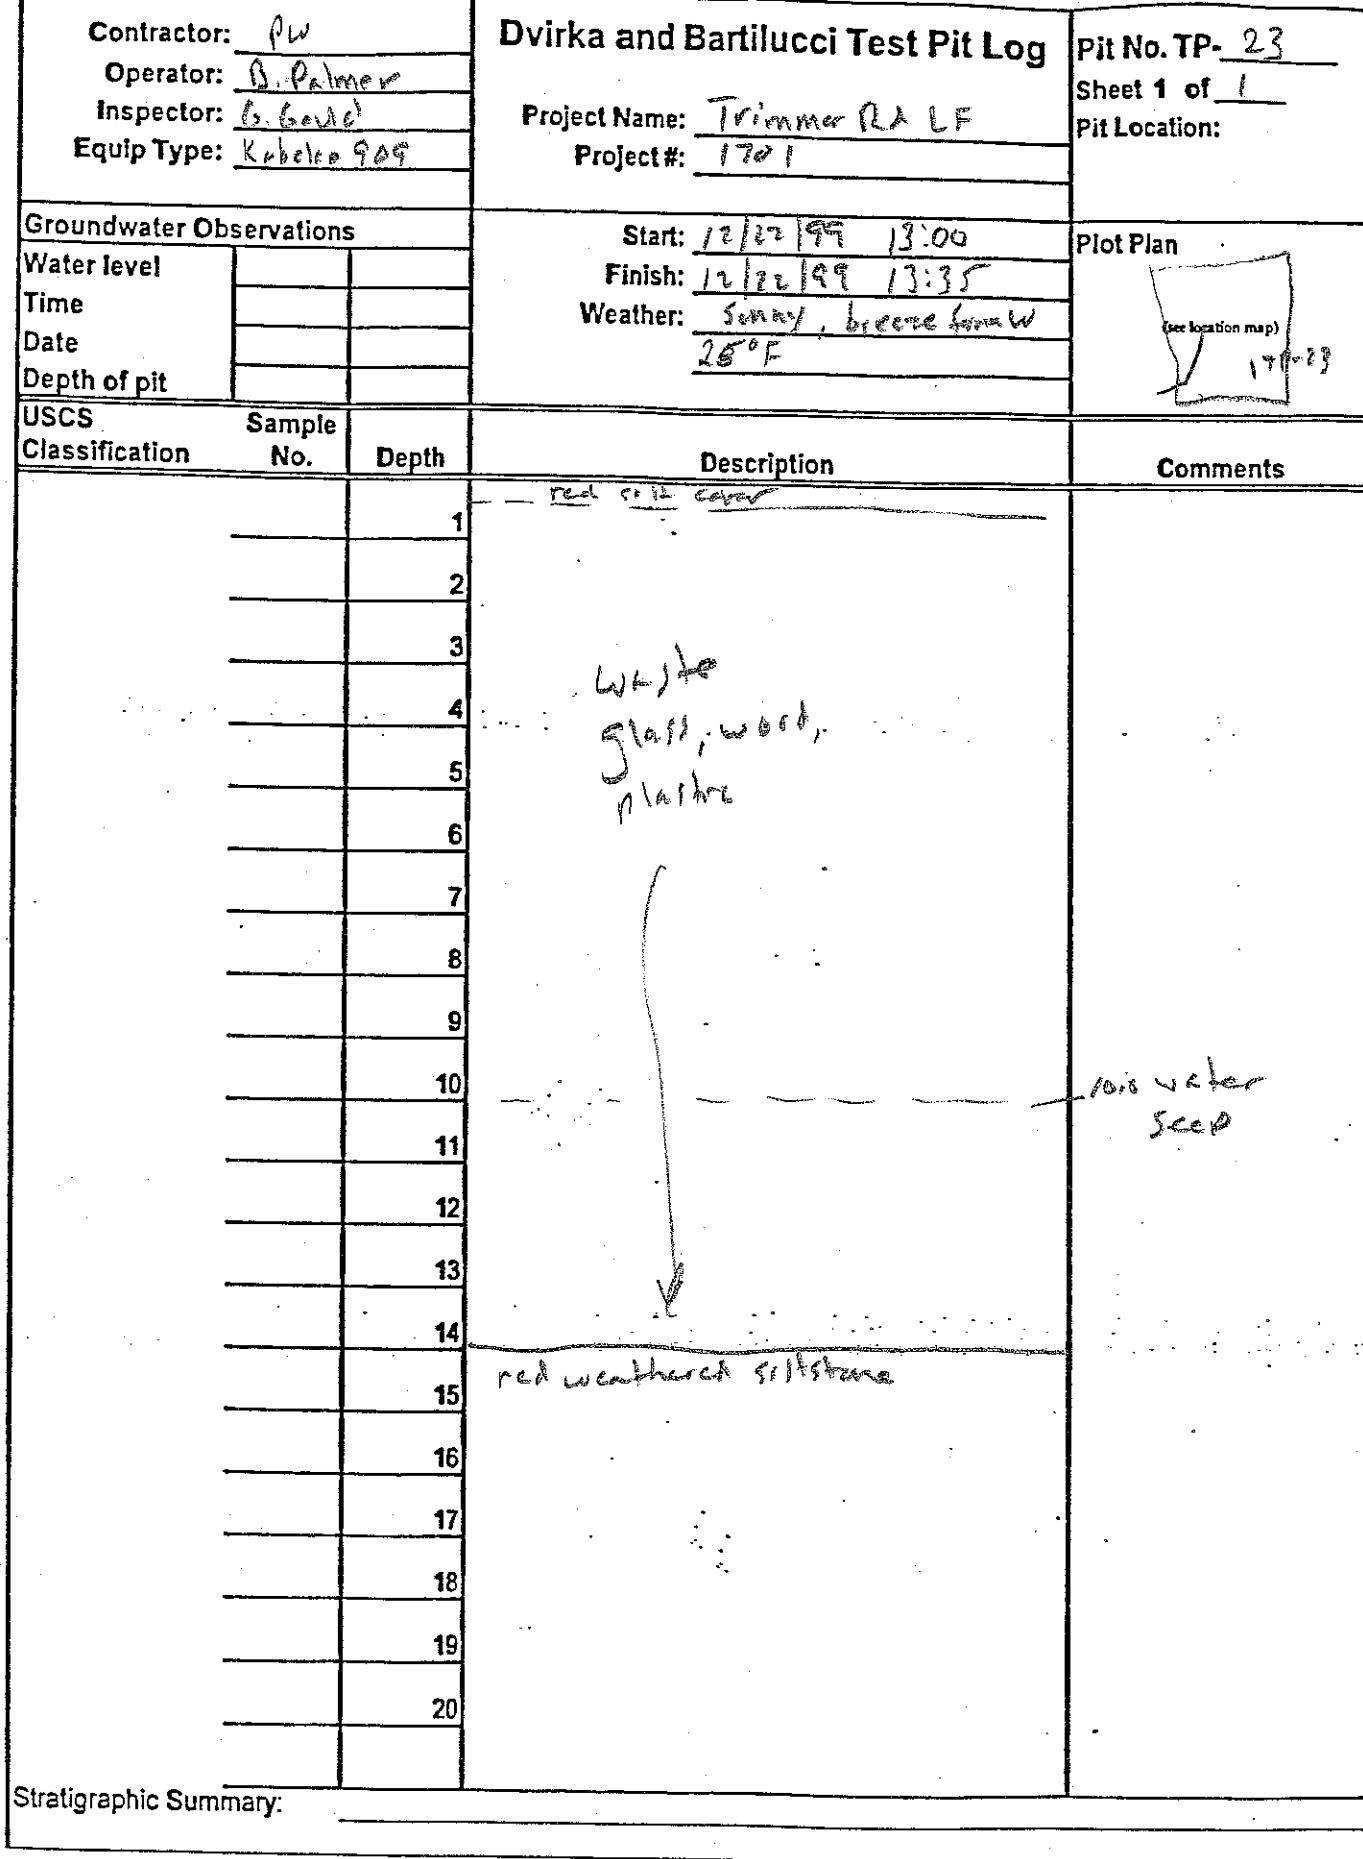 Contractor: PW
Operator: B. Palmer
Inspector: G. Gould
Equip Type: Kobelco 909
Dvirka and Bartilucci Test Pit Log
Project Name: Trimmer Rd LF
Project#: 1701
Pit No. TP- 23
Sheet 1 of 1
Pit Location:
Groundwater Observations
Water level
Time
Date
Depth of pit
Start: 12/22/99 13:00
Finish: 12/22/99 13:35
Weather: Sunny, breeze from W
25°F
Plot Plan
(see location map)
TP-23
USCS Classification
Sample No.
Depth
Description
Comments
red silt cover
1
2
3
waste
4
glass, wood,
5
plastic
6
7
8
9
10
10.0 water
seep
11
12
13
14
red weathered siltstone
15
16
17
18
19
20
Stratigraphic Summary: